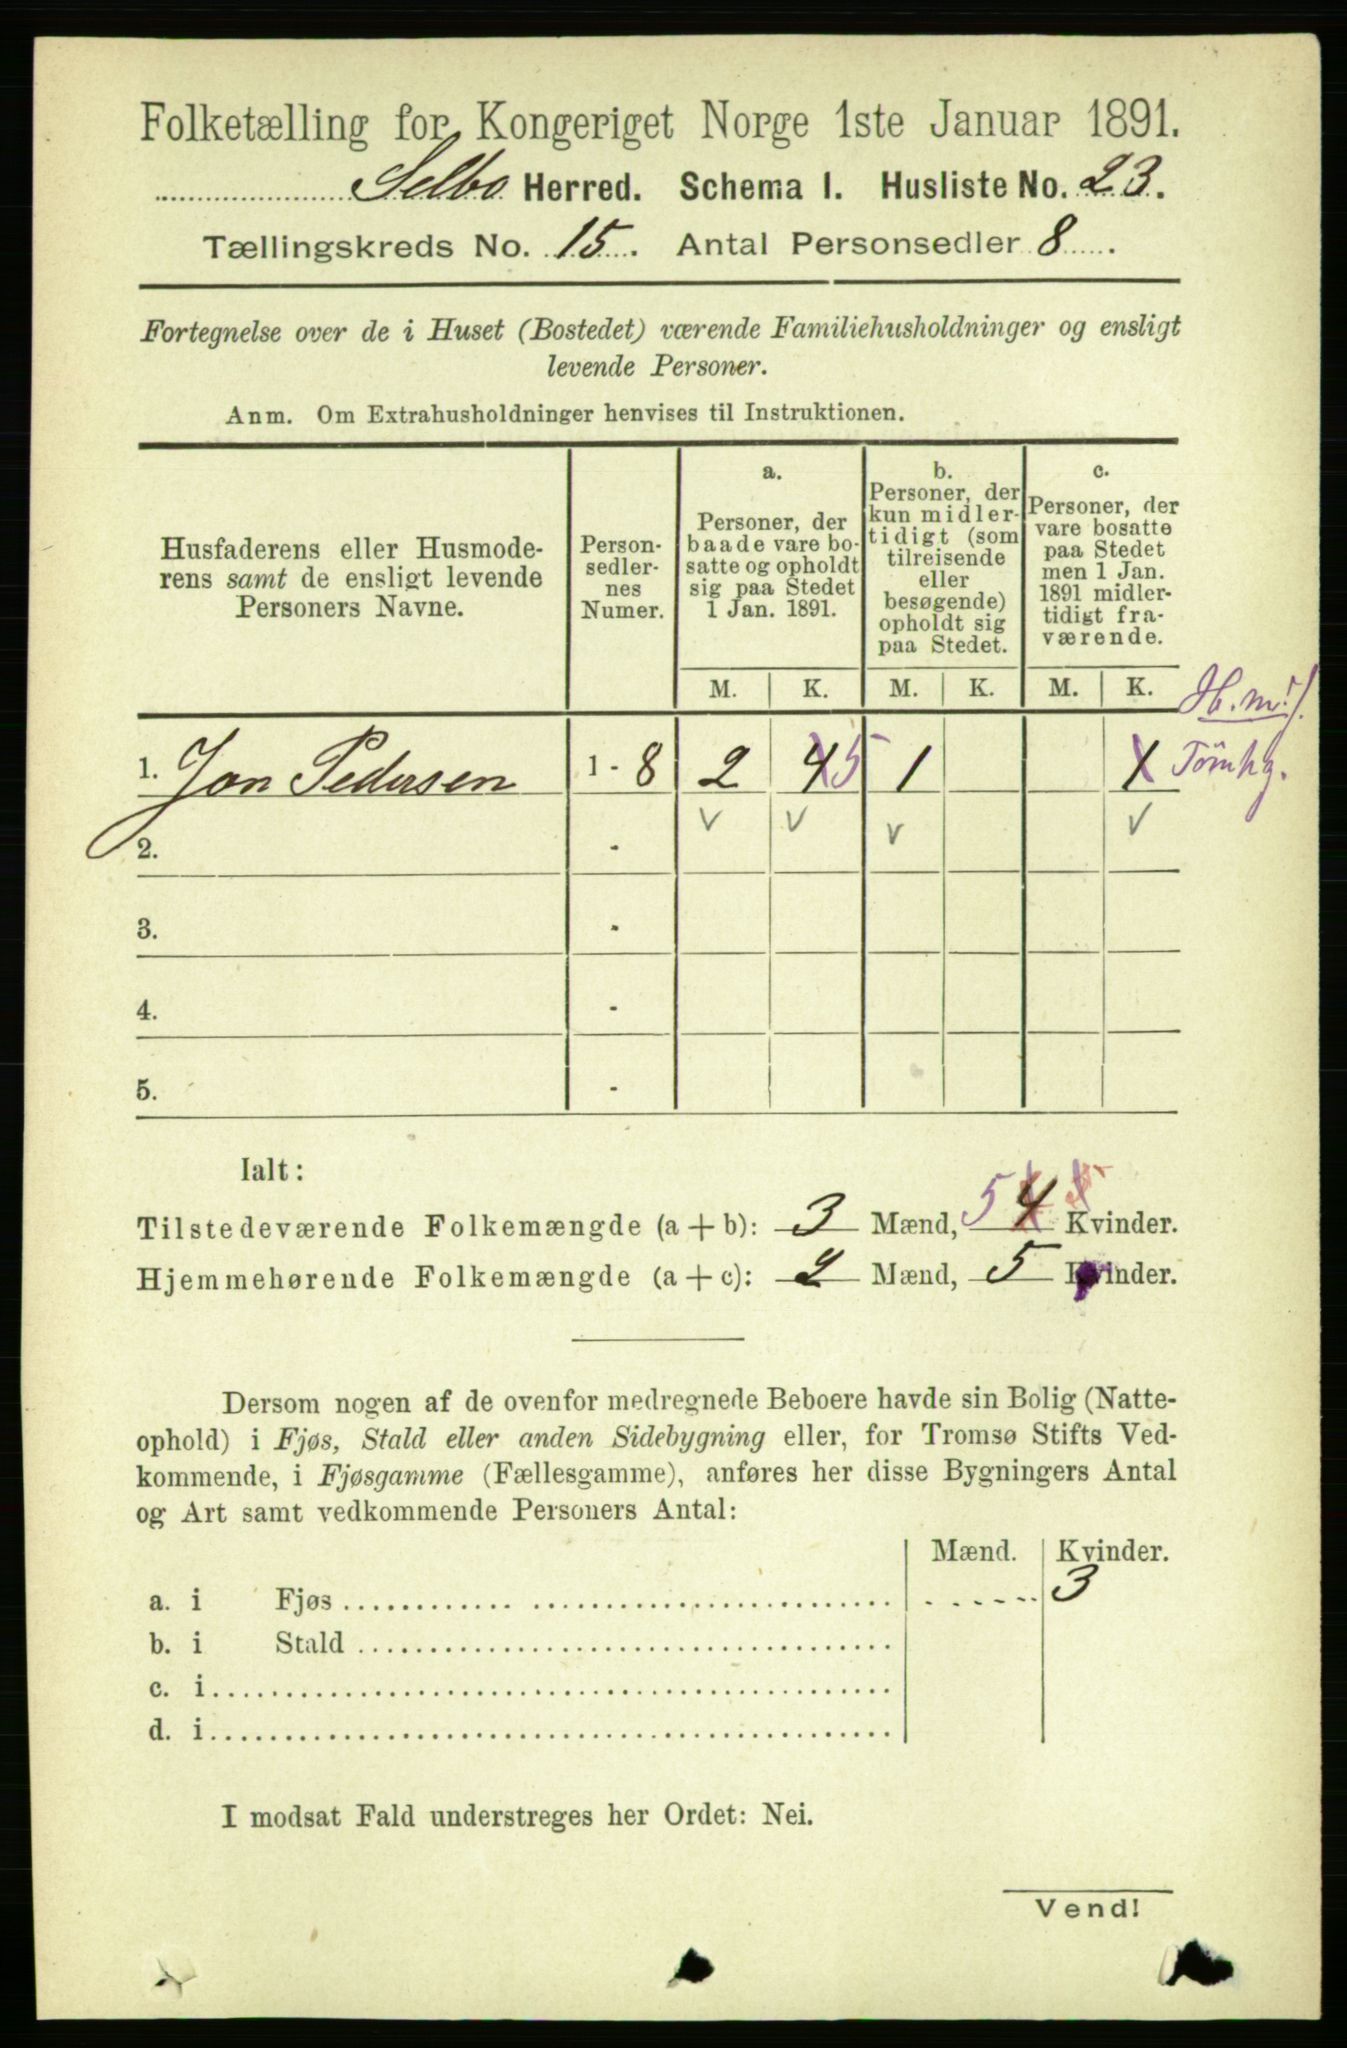 Folketælling for Kongeriget Norge 1ste Januar 1891.
Selbo Herred. Schema I. Husliste No. 23.
Tællingskreds No. 15. Antal Personsedler 8.
Fortegnelse over de i Huset (Bostedet) værende Familiehusholdninger og ensligt
levende Personer.
Anm. Om Extrahusholdninger henvises til Instruktionen.
Husfaderens eller Husmode-
rens samt de ensligt levende
Personers Navne.
Person-
sedler-
nes
Numer.
a.
Personer, der
baade vare bo-
satte og opholdt
sig paa Stedet
1 Jan. 1891.
b.
Personer, der
kun midler-
tidigt (som
tilreisende
eller
besøgende)
opholdt sig
paa Stedet.
c.
Personer, der
vare bosatte
paa Stedet
men 1 Jan.
1891 midler-
tidigt fra-
værende.
M. K. M. K. M. K.
1. Jon Pedersen 1 - 8 2 4 5 1 1
2. -
3. -
4. -
5. -
Ialt:
Tilstedeværende Folkemængde (a + b): 3 Mænd, 5 4 Kvinder.
Hjemmehørende Folkemængde (a + c): 2 Mænd, 5 Kvinder.
Dersom nogen af de ovenfor medregnede Beboere havde sin Bolig (Natte-
ophold) i Fjøs, Stald eller anden Sidebygning eller, for Tromsø Stifts Ved-
kommende, i Fjøsgamme (Fællesgamme), anføres her disse Bygningers Antal
og Art samt vedkommende Personers Antal:
Mænd. Kvinder.
a. i Fjøs 3
b. i Stald
c. i
d. i
I modsat Fald understreges her Ordet: Nei.
Vend!